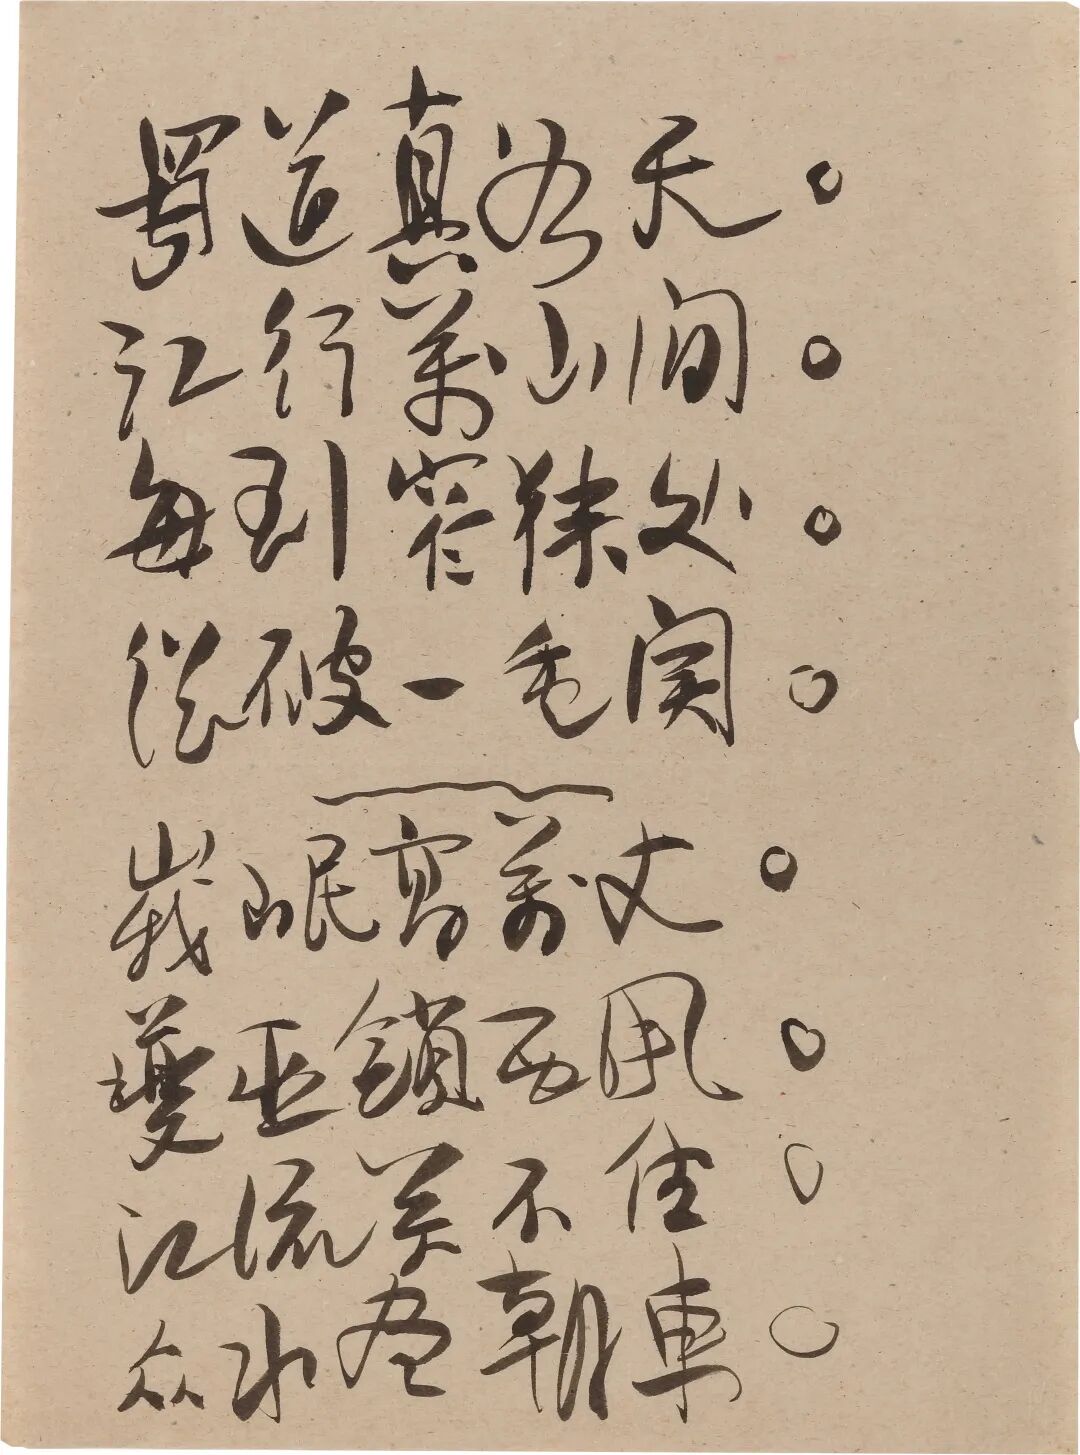 蜀道真天。
江行萬山间。
每到窄狭处。
從破一毛関。
峩岷高萬丈。
夔巫鎖西風。
江流关不住。
众水尽朝東。